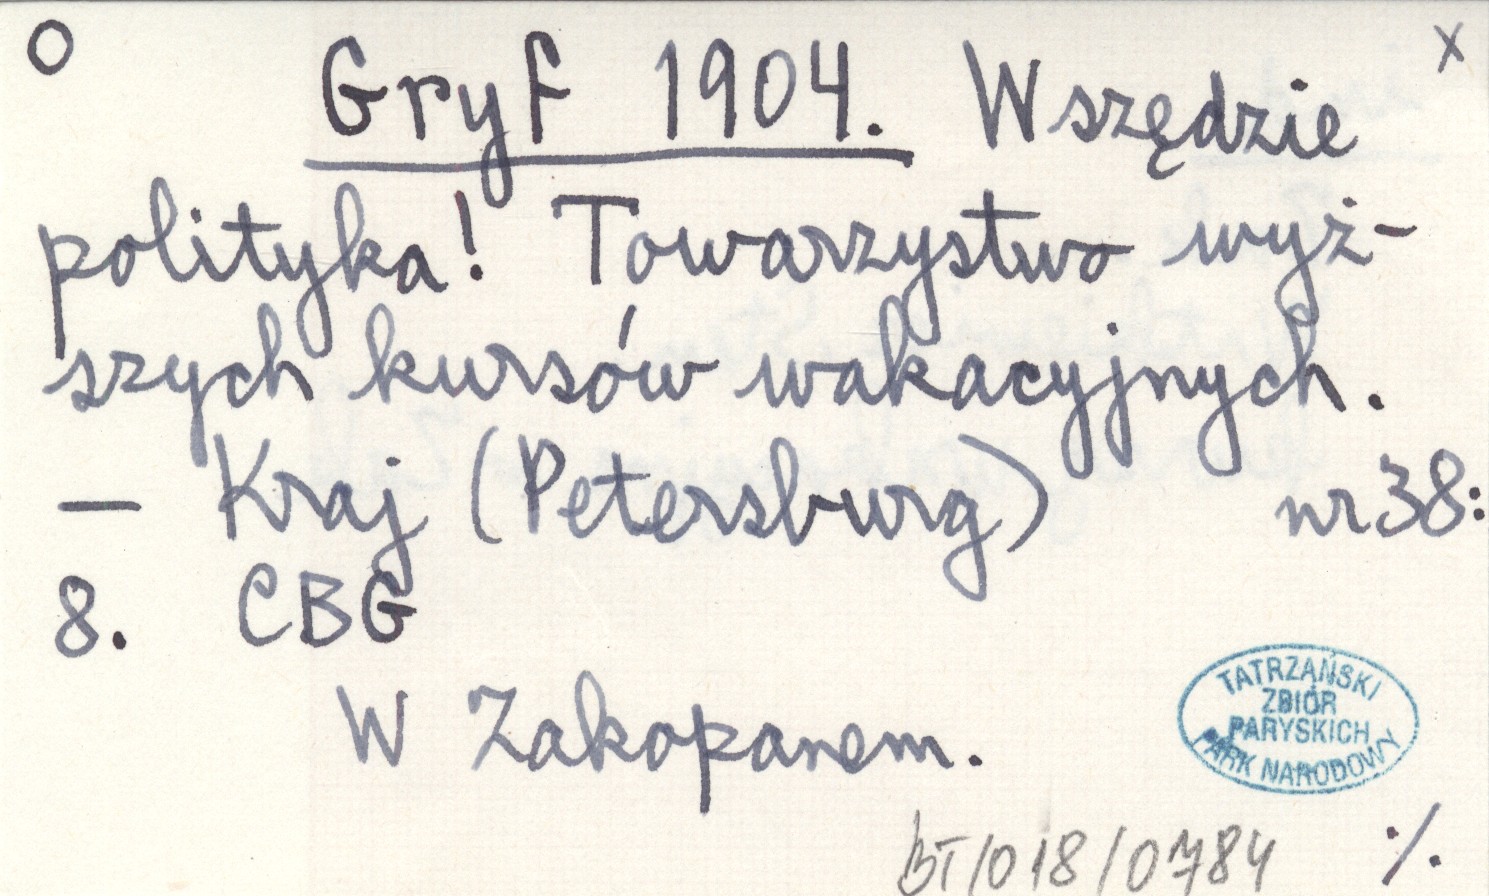 O Gryf 1904. Wszędzie x
polityka! Towarzystwo wyż-
szych kursów wakacyjnych.
— Kraj (Petersburg) nr 38:
8. CBG
W Zakopanem.
TATRZAŃSKI
ZBIÓR
PARYSKICH
PARK NARODOWY
BT/018/0784 ·/.